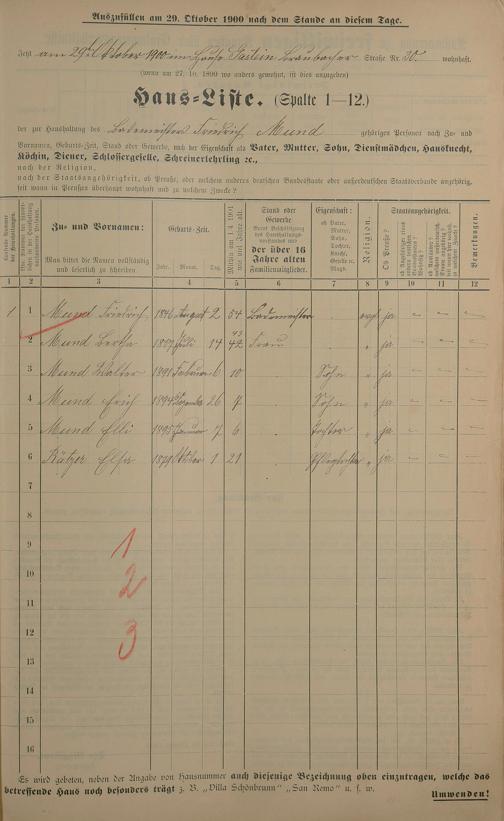 Auszufüllen am 29. Oktober 1900 nach dem Stande an diesem Tage.
Jetzt am 29ten Oktober 1900 im Hause Gastein Braubacher Straße Nr. 30. wohnhaft.
(wenn am 27. 10. 1899 wo anders gewohnt, ist dies anzugeben)
Haus-Liste. (Spalte 1—12.)
der zur Haushaltung des Bademeister Friedrich Mund gehörigen Personen nach Zu- und
Vornamen, Geburts-Zeit, Stand oder Gewerbe, mit der Eigenschaft als Vater, Mutter, Sohn, Dienstmädchen, Hausknecht,
Köchin, Diener, Schlossergeselle, Schreinerlehrling ec.,
nach der Religion,
nach der Staatsangehörigkeit, ob Preuße, oder welchem anderen deutschen Bundesstaate oder außerdeutschen Staatsverbande angehörig,
seit wann in Preußen überhaupt wohnhaft und zu welchem Zwecke?
Zu- und Vornamen:
Man bittet die Namen vollständig und leserlich zu schreiben
Geburts-Zeit.
Jahr. Monat. Tag.
Mithin am 1/4 1901 wie viel Jahre alt.
Stand oder Gewerbe
der über 16 Jahre alten Familienmitglieder.
Eigenschaft:
ob Vater, Mutter, Sohn, Tochter, Knecht, Geselle o. Magd.
Religion.
Staatsangehörigkeit.
Ob Preuße?
Bemerkungen.
1 2 3 4 5 6 7 8 9 10 11 12
1 1 Mund Friedrich 1846 August 2 54 Bademeister evgl ja — — —
2 Mund Bertha 1857 Juli 14 43 42 Frau " ja — — —
3 Mund Walter 1891 Februar 6 10 Sohn " ja — — —
4 Mund Erich 1894 Dezember 26 7 Sohn " ja — — —
5 Mund Elli 1895 Januar 7 6 Tochter " ja — — —
6 Elsa 1879 Oktober 1 21 " ja — — —
7
8
9 1
10 2
11
12 3
13
14
15
16
Es wird gebeten, neben der Angabe von Hausnummer auch diejenige Bezeichnung oben einzutragen, welche das
betreffende Haus noch besonders trägt z. B. „Villa Schönbrunn" „San Remo" u. s. w.
Umwenden!